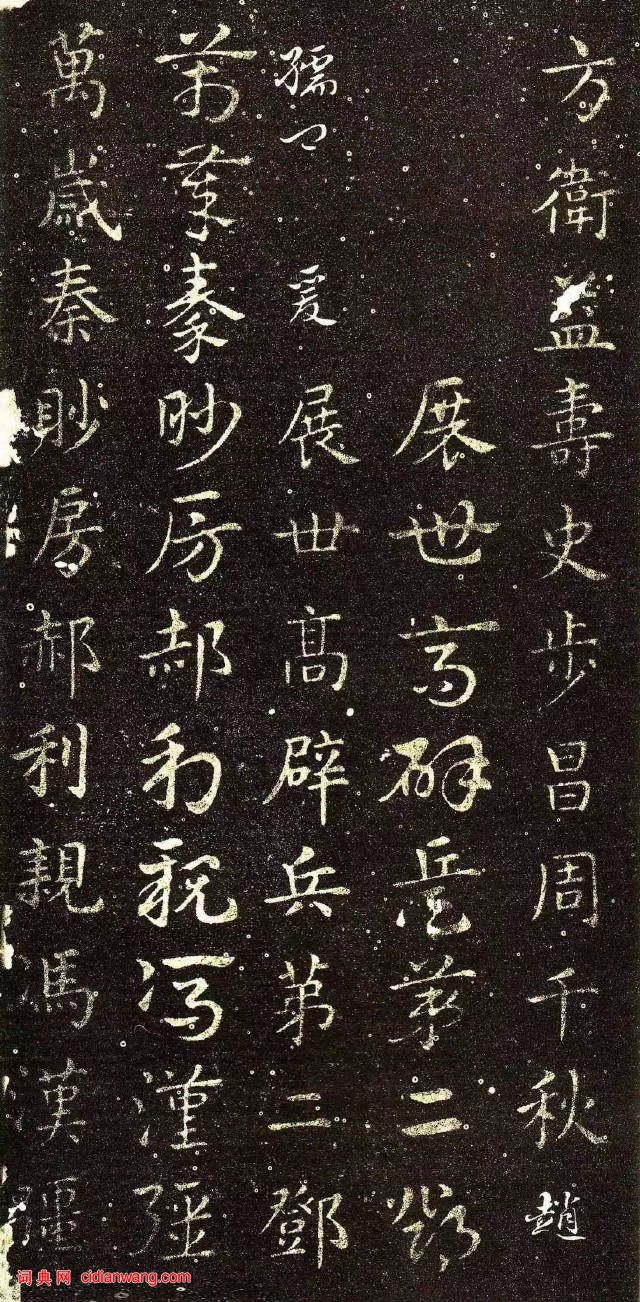 方衛益壽史步昌周千秋趙
展世高辟兵第二鄧
孺卿爰展世高辟兵第二鄧
萬歲秦眇房郝利親馮漢彊
萬歲秦眇房郝利親馮漢彊
词典网 cidianwang.com